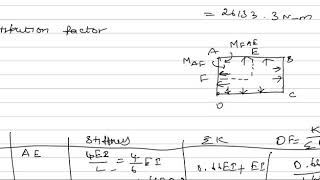 = 26133.3 N-m
tribution factor
A MFAE E B
MAF
F
D C
Stiffness ΣK DF = K
AE 4EI/L = 4/6 EI 0.66EI + EI 0.66